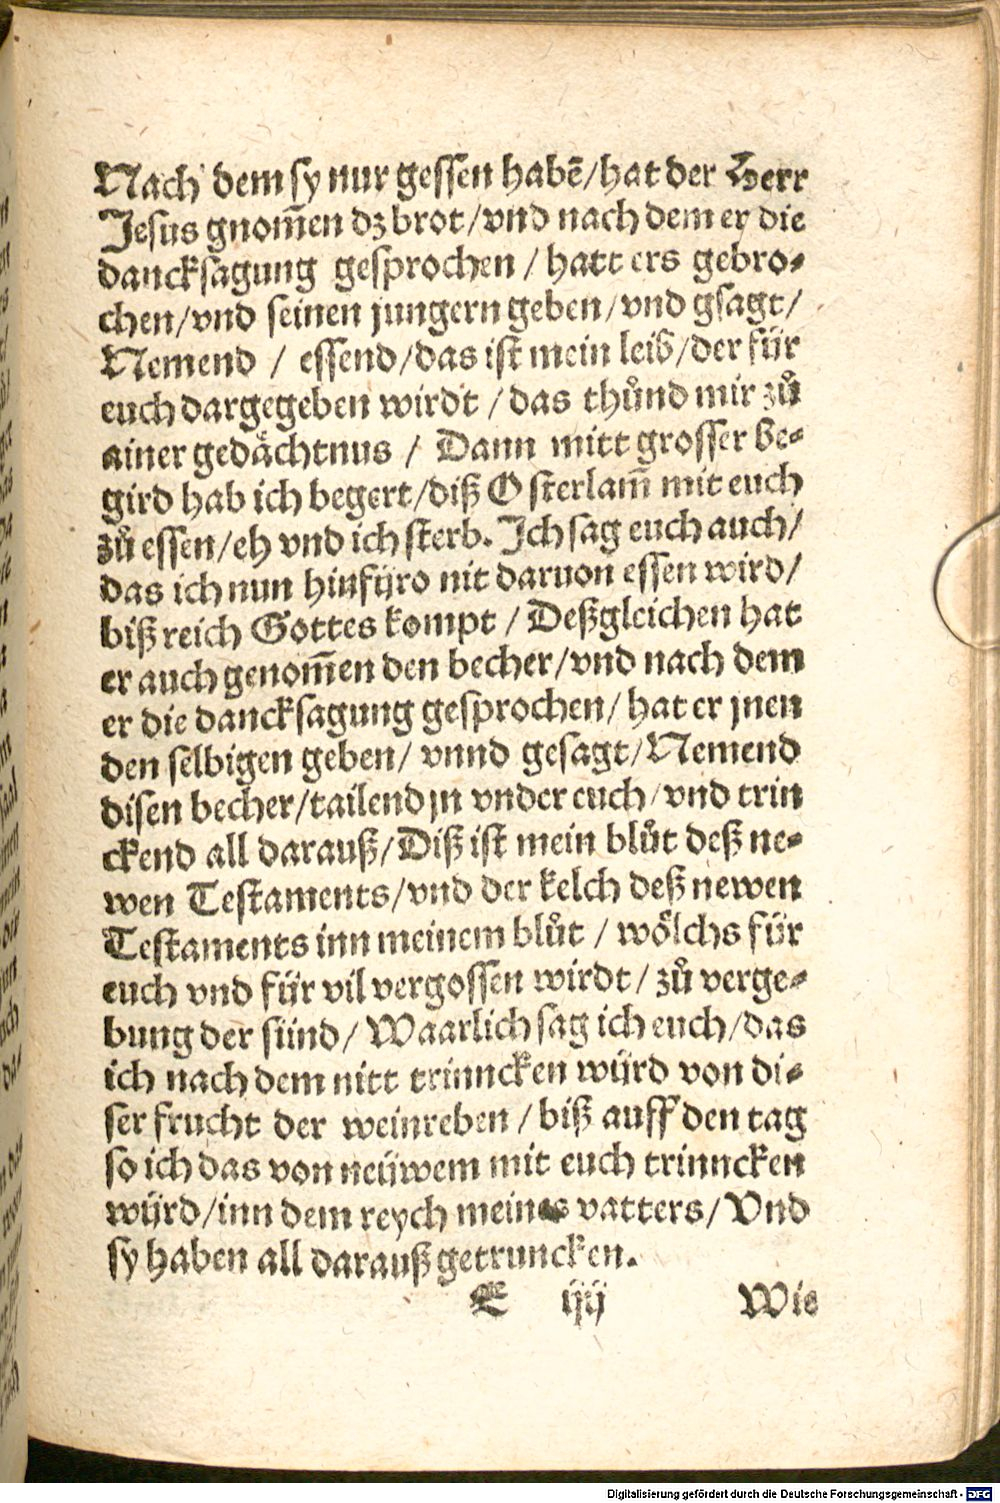 Nach dem sy nur gessen habẽ/hat der Herr
Jesus gnom̃en dz brot/vnd nach dem er die
dancksagung gesprochen / hatt ers gebro⸗
chen/vnd seinen jungern geben/vnd gsagt/
Nemend / essend/das ist mein leib/der für
euch dargegeben wirdt / das thůnd mir zů
ainer gedächtnus / Dann mitt grosser be⸗
gird hab ich begert/diß Osterlam̃ mit euch
zů essen/eh vnd ich sterb. Ich sag euch auch/
das ich nun hinfüro nit daruon essen wird/
biß reich Gottes kompt / Deßgleichen hat
er auch genom̃en den becher/vnd nach dem
er die dancksagung gesprochen/ hat er jnen
den selbigen geben/ vnnd gesagt/Nemend
disen becher/tailend jn vnder euch/vnd trin
ckend all darauß/Diß ist mein blůt deß ne⸗
wen Testaments/vnd der kelch deß newen
Testaments inn meinem blůt / wölchs für
euch vnd für vil vergossen wirdt/ zů verge⸗
bung der sünd/ Waarlich sag ich euch/das
ich nach dem nitt trinncken würd von di⸗
ser frucht der weinreben / biß auff den tag
so ich das von neüwem mit euch trinncken
würd/inn dem reych meines vatters/Vnd
sy haben all darauß getruncken.
E iij Wie
Digitalisierung gefördert durch die Deutsche Forschungsgemeinschaft - DFG